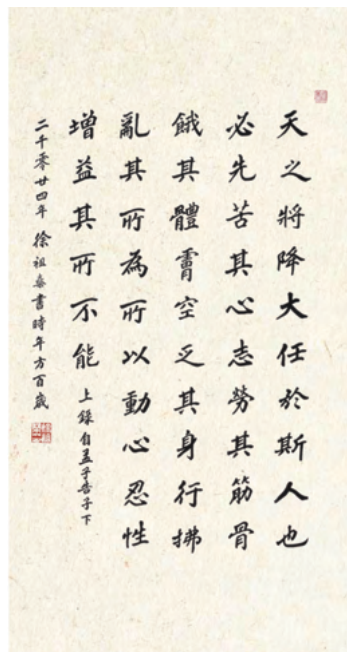 天之將降大任於斯人也
必先苦其心志勞其筋骨
餓其體膚空乏其身行拂
亂其所為所以動心忍性
增益其所不能 上錄自孟子告子下
二千零廿四年 徐祖 書時年方百歲